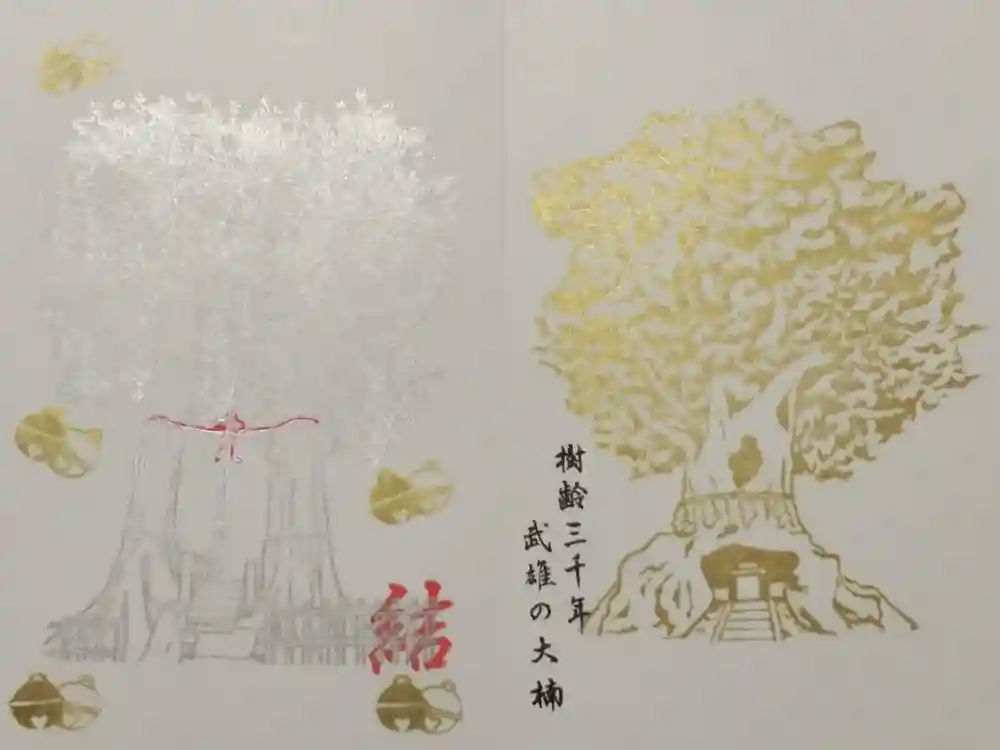 樹齢三千年
武雄の大楠
結